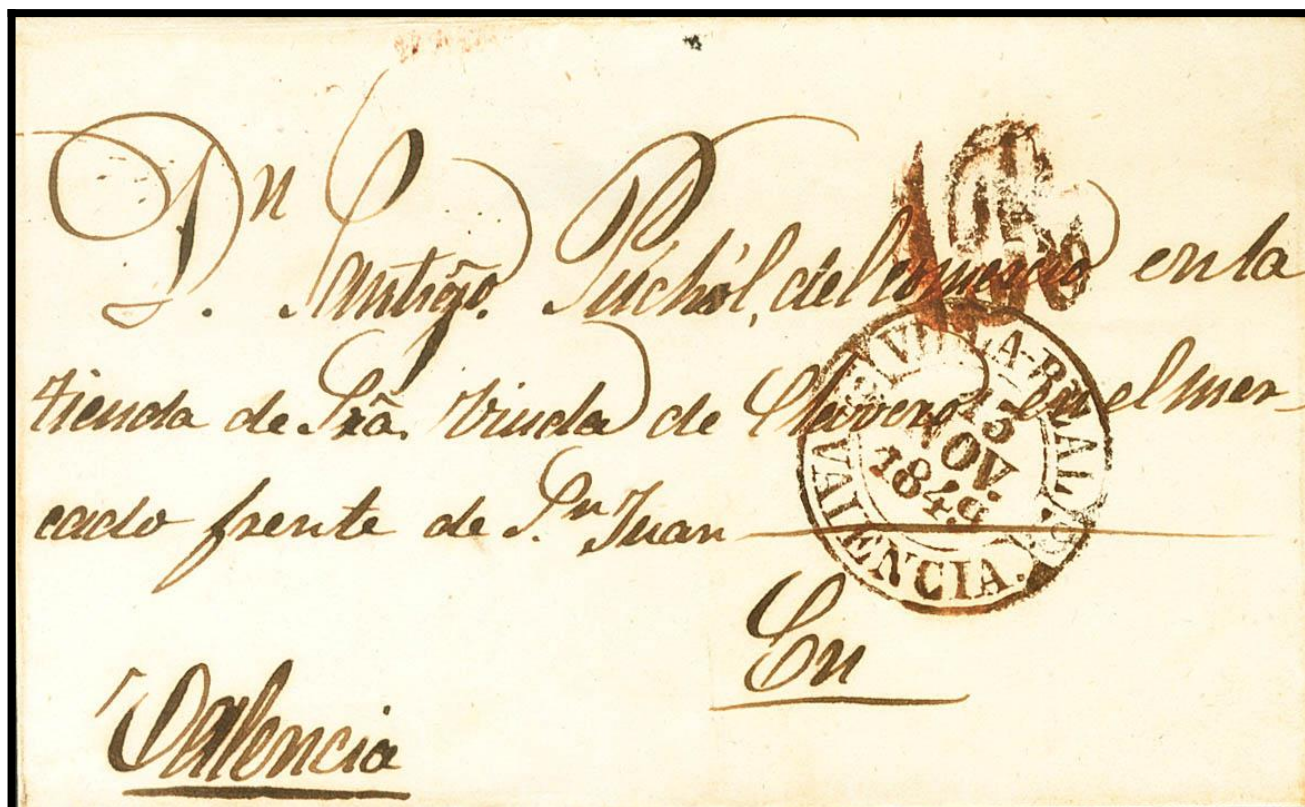 Dn Santigo. Puchól, del comercio en la
tienda de Sra. Viuda de Clavero en el mer-
cado frente de Sn. Juan
En
Valencia
VILLA-REAL
15
NOV.
1849
VALENCIA.